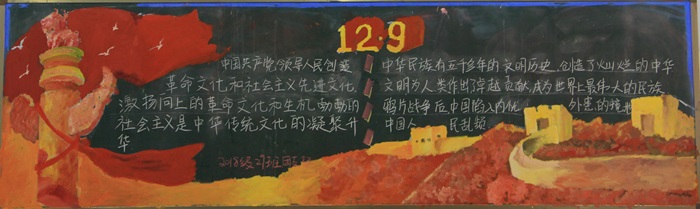 12·9
中国共产党领导人民创造
革命文化和社会主义先进文化
激扬向上的革命文化和生机勃勃的
社会主义是中华传统文化的凝聚升
华
2018级27班
中华民族有五千多年的文明历史,创造了灿烂的中华
文明为人类作出了卓越贡献,成为世界上最伟大的民族
鸦片战争后,中国陷入内忧
中国人 民乱